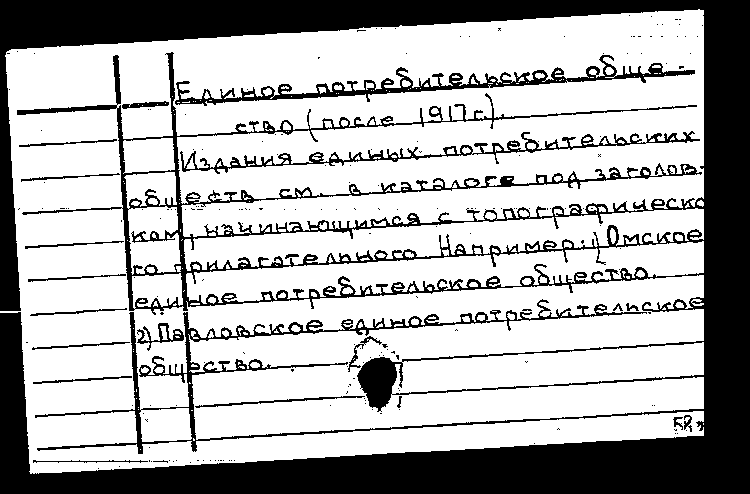 Единое потребительское обще-
ство (после 1917 г.).
Издания единых потребительских
обществ см. в каталоге под заголов-
кам, начинающимся с топографическо
го прилагательного Например: 1) Омское
единое потребительское общество.
2) Павловское единое потребительское
общество.